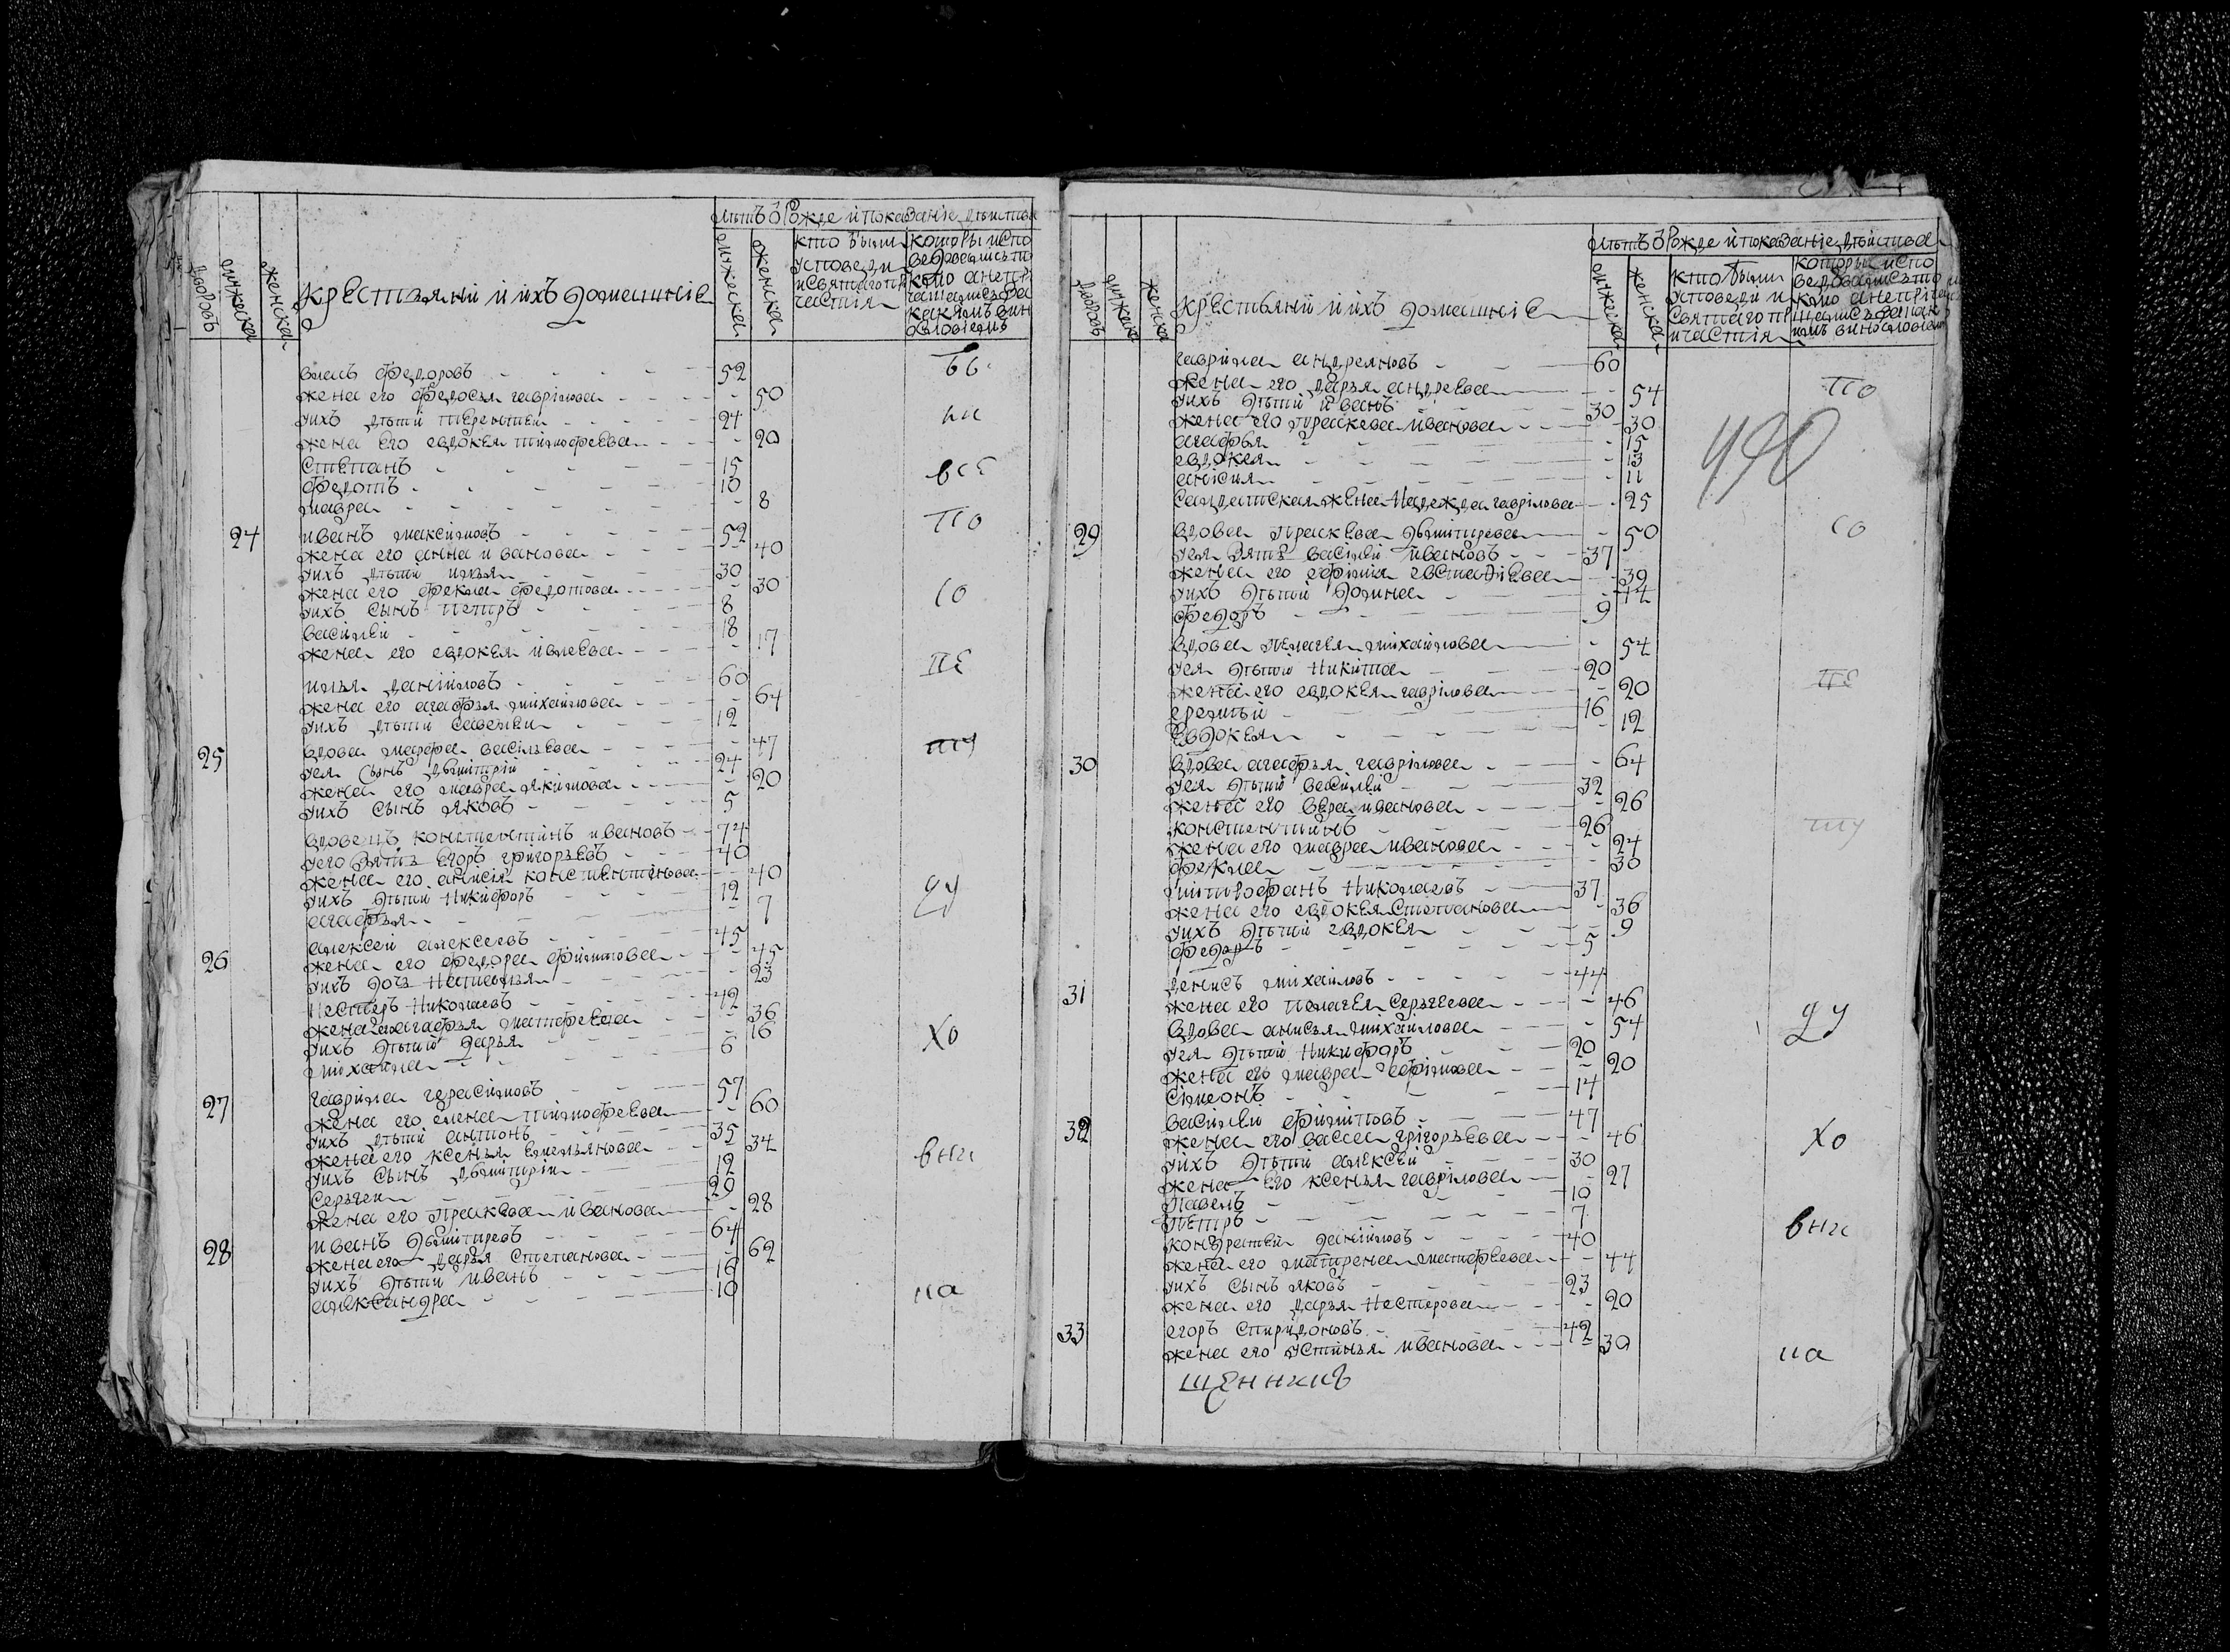 лѣтъ ѿ Рожде и показаніе дѣиства
дворовъ
мужска
женска
крестьяни и ихъ домашніе
мужеска
женска
кто были
успове́ди
и святаго при
частія
которы испо
ведовались то
кмо а не при
чащались за
какимъ вин
ословіемъ
власъ федоровъ 52
жена его федосья гаврілова 50
уихъ дѣти терентеи 24
жена его евдокея тимофеева 20
степанъ 15
федотъ 10
мавра 8
24 иванъ максимовъ 52
жена его анна иванова 40
уихъ дѣти илья 30
жена его фекла федотова 30
уихъ сынъ петръ 8
василеи 18
жена его евдокея ивлева 17
илья даниловъ 60
жена его агафья михаилова 64
уихъ дѣти савелеи 12
25 вдова марфа васильева 47
уея сынъ дмитріи 24
жена его мавра якимова 20
уихъ сынъ яковъ 5
вдовецъ констентинъ ивановъ 74
уего зять егоръ григорьевъ 40
жена его анисія констентинова 40
уихъ дѣти никифоръ 12
агафья 7
алексеи алексеевъ 45
26 жена его федора филипова 45
уихъ дочь наталья 23
нестеръ николаевъ 42
жена его агафья матфеева 36
уихъ дѣти дарья 16
михаила 6
гаврила герасимовъ 57
27 жена его елена тимофеева 60
уихъ дѣти антонъ 35
жена его ксенья емельянова 34
уихъ сынъ дмитріи 12
сергеи 29
жена его прасковья иванова 28
иванъ дмитревъ 64
28 жена его дарья степанова 62
уихъ дѣти иванъ 16
александра 10
по
все
по
со
пе
ту
ду
хо
вни
ца
лѣтъ ѿ Рожде и показаніе дѣиства
дворовъ
мужска
женска
крестьяни и ихъ домашніе
мужеска
женска
кто были
успове́ди и
святаго пр
ичастія
которы испо
ведовались то
кмо а не прича
щались за как
имъ винословіем
гаврила андреяновъ 60
жена его дарья андреева 54
уихъ дѣти иванъ 30
жена его праскева иванова 30
агафья 15
евдокея 13
анисия 11
салдатская жена надежда гаврілова 25
29 вдова праскева дмитрева 50
уея зять василеи ивановъ 37
жена его ефімія евстафіева 39
уихъ дѣти домна 14
федоръ 9
вдова пелагея михаилова 54
уея дѣти никита 20
жена его евдокея гаврілова 20
еремѣи 16
евдокея 12
30 вдова агафья гаврілова 64
уея дѣти василеи 32
жена его вера иванова 26
констентинъ 26
жена его мавра иванова 24
фекла 30
митрофанъ николаевъ 37
жена его евдокея степанова 36
уихъ дѣти евдокея 9
федоръ 5
денисъ михаиловъ 44
31 жена его пелагея сергеева 46
вдова анисья михаилова 54
уея дѣти никифоръ 20
жена его мавра ефімова 20
симеонъ 14
василеи филиповъ 47
32 жена его васса грігорьева 46
уихъ дѣти алексеи 30
жена его ксенья гаврілова 27
павелъ 10
петръ 7
кондратеи даниловъ 40
жена его матрена матфеева 44
уихъ сынъ яковъ 23
жена его дарья нестерова 20
33 егоръ спиридоновъ 42
жена его устинья иванова 39
490
по
со
пе
ту
ду
хо
вни
ца
щенникъ